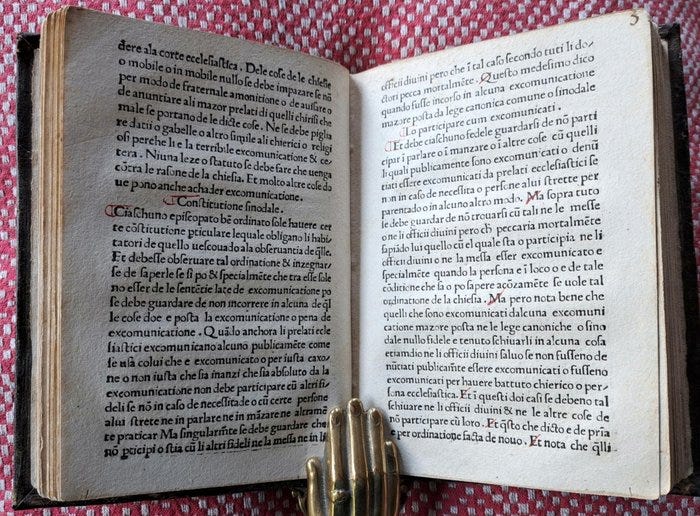 dere ala corte ecclesiastica. Dele cose de le chiesse
o mobile o in mobile nullo se debe impazare se nō
per modo de fraternale amonitione o de auisare o
de anuntiare ali mazor prelati di quelli chirisi che
male se portano de le dicte cose. Ne se debe piglia
re datii o gabelle o altro simile ali chierici o religi
osi perche li e la terribile excomunicatione & ce/
tera. Niuna leze o statuto se debe fare che uenga
cōtra le rasone de la chiesia. Et molto altre cose do
ue pono anche achader excomunicatione.
Constitutione sinodale.
Ciaschuno episcopato bē ordinato sole hauere cer
te cōstitutione pticulare lequale obligano li habi/
tatori de quello uescouado ala obseruantia de q̄lle.
Et debesse obseruar tal ordinatione & inzegnar/
se de saperle se si po & specialmēte che tra esse sole
no esser de le sentētie late de excomunicatione po
se debe guardare de non incorrere in alcuna de q̄l
le cose doe e posta la excomunicatione o pena de
excomunicatione. Quādo anchora li prelati eccle
siastici excomunicano alcuno publicamēte come
se usa colui che e excomunicato o per iusta caxo/
ne o non iusta che sia inanzi che sia absoluto da la
excomunicatione non debe participare cū altri fi/
deli se nō in caso de necessita de o cū certe persone
alui strete ne in parlare ne in māzare ne altramē
te praticar Ma singularmēte se debe guardare che
nō pticipi o stia cū li altri fideli ne la messa ne in li
3
officii diuini pero che ī tal caso secondo tuti li do/
ctori pecca mortalmēte. Questo medesimo dico
quando fusse incorso in alcuna excomunicatione
mazore posta da lege canonica comune o sinodale
Lo participare cum excomunicati.
Et debe ciaschuno fedele guardarsi de nō parti
cipar ī parlare o ī manzare o ī altre cose cū quelli
li quali publicamente sono excomunicati o denū
tiati essere excomunicati da prelati ecclesiastici se
non in caso de necessita o persone alui strette per
parentado o in alcuno altro modo. Ma sopra tuto
se debe guardar de nō trouarsi cū tali ne le messe
o ne li officii diuini pero ch peccaria mortalmēte
sapiādo lui quello cū el quale sta o participia ne li
diuini o ne la messa esser excomunicato e
specialmēte quando la persona e ī loco o e de tale
cōditione che sa o po sapere acōzamēte se uole tal
ordinatione de la chiesia. Ma pero nota bene che
quelli che sono excomunicati dalcuna excomuni
catione mazore posta ne le lege canoniche o sino
dale nullo fidele e tenuto schiuarli in alcuna cosa
etiamdio ne li officii diuini saluo se non fusseno de
nūtiati publicamēte essere excomunicati o fusseno
excomunicati per hauere battuto chierico o per/
sona ecclesiastica. Et ī questi doi casi se debeno tal
schiuare ne li officii diuini & ne le altre cose de
nō participare cū loro. Et q̄sto che dicto e de pria
e per ordinatione facta de nouo. Et nota che q̄lli